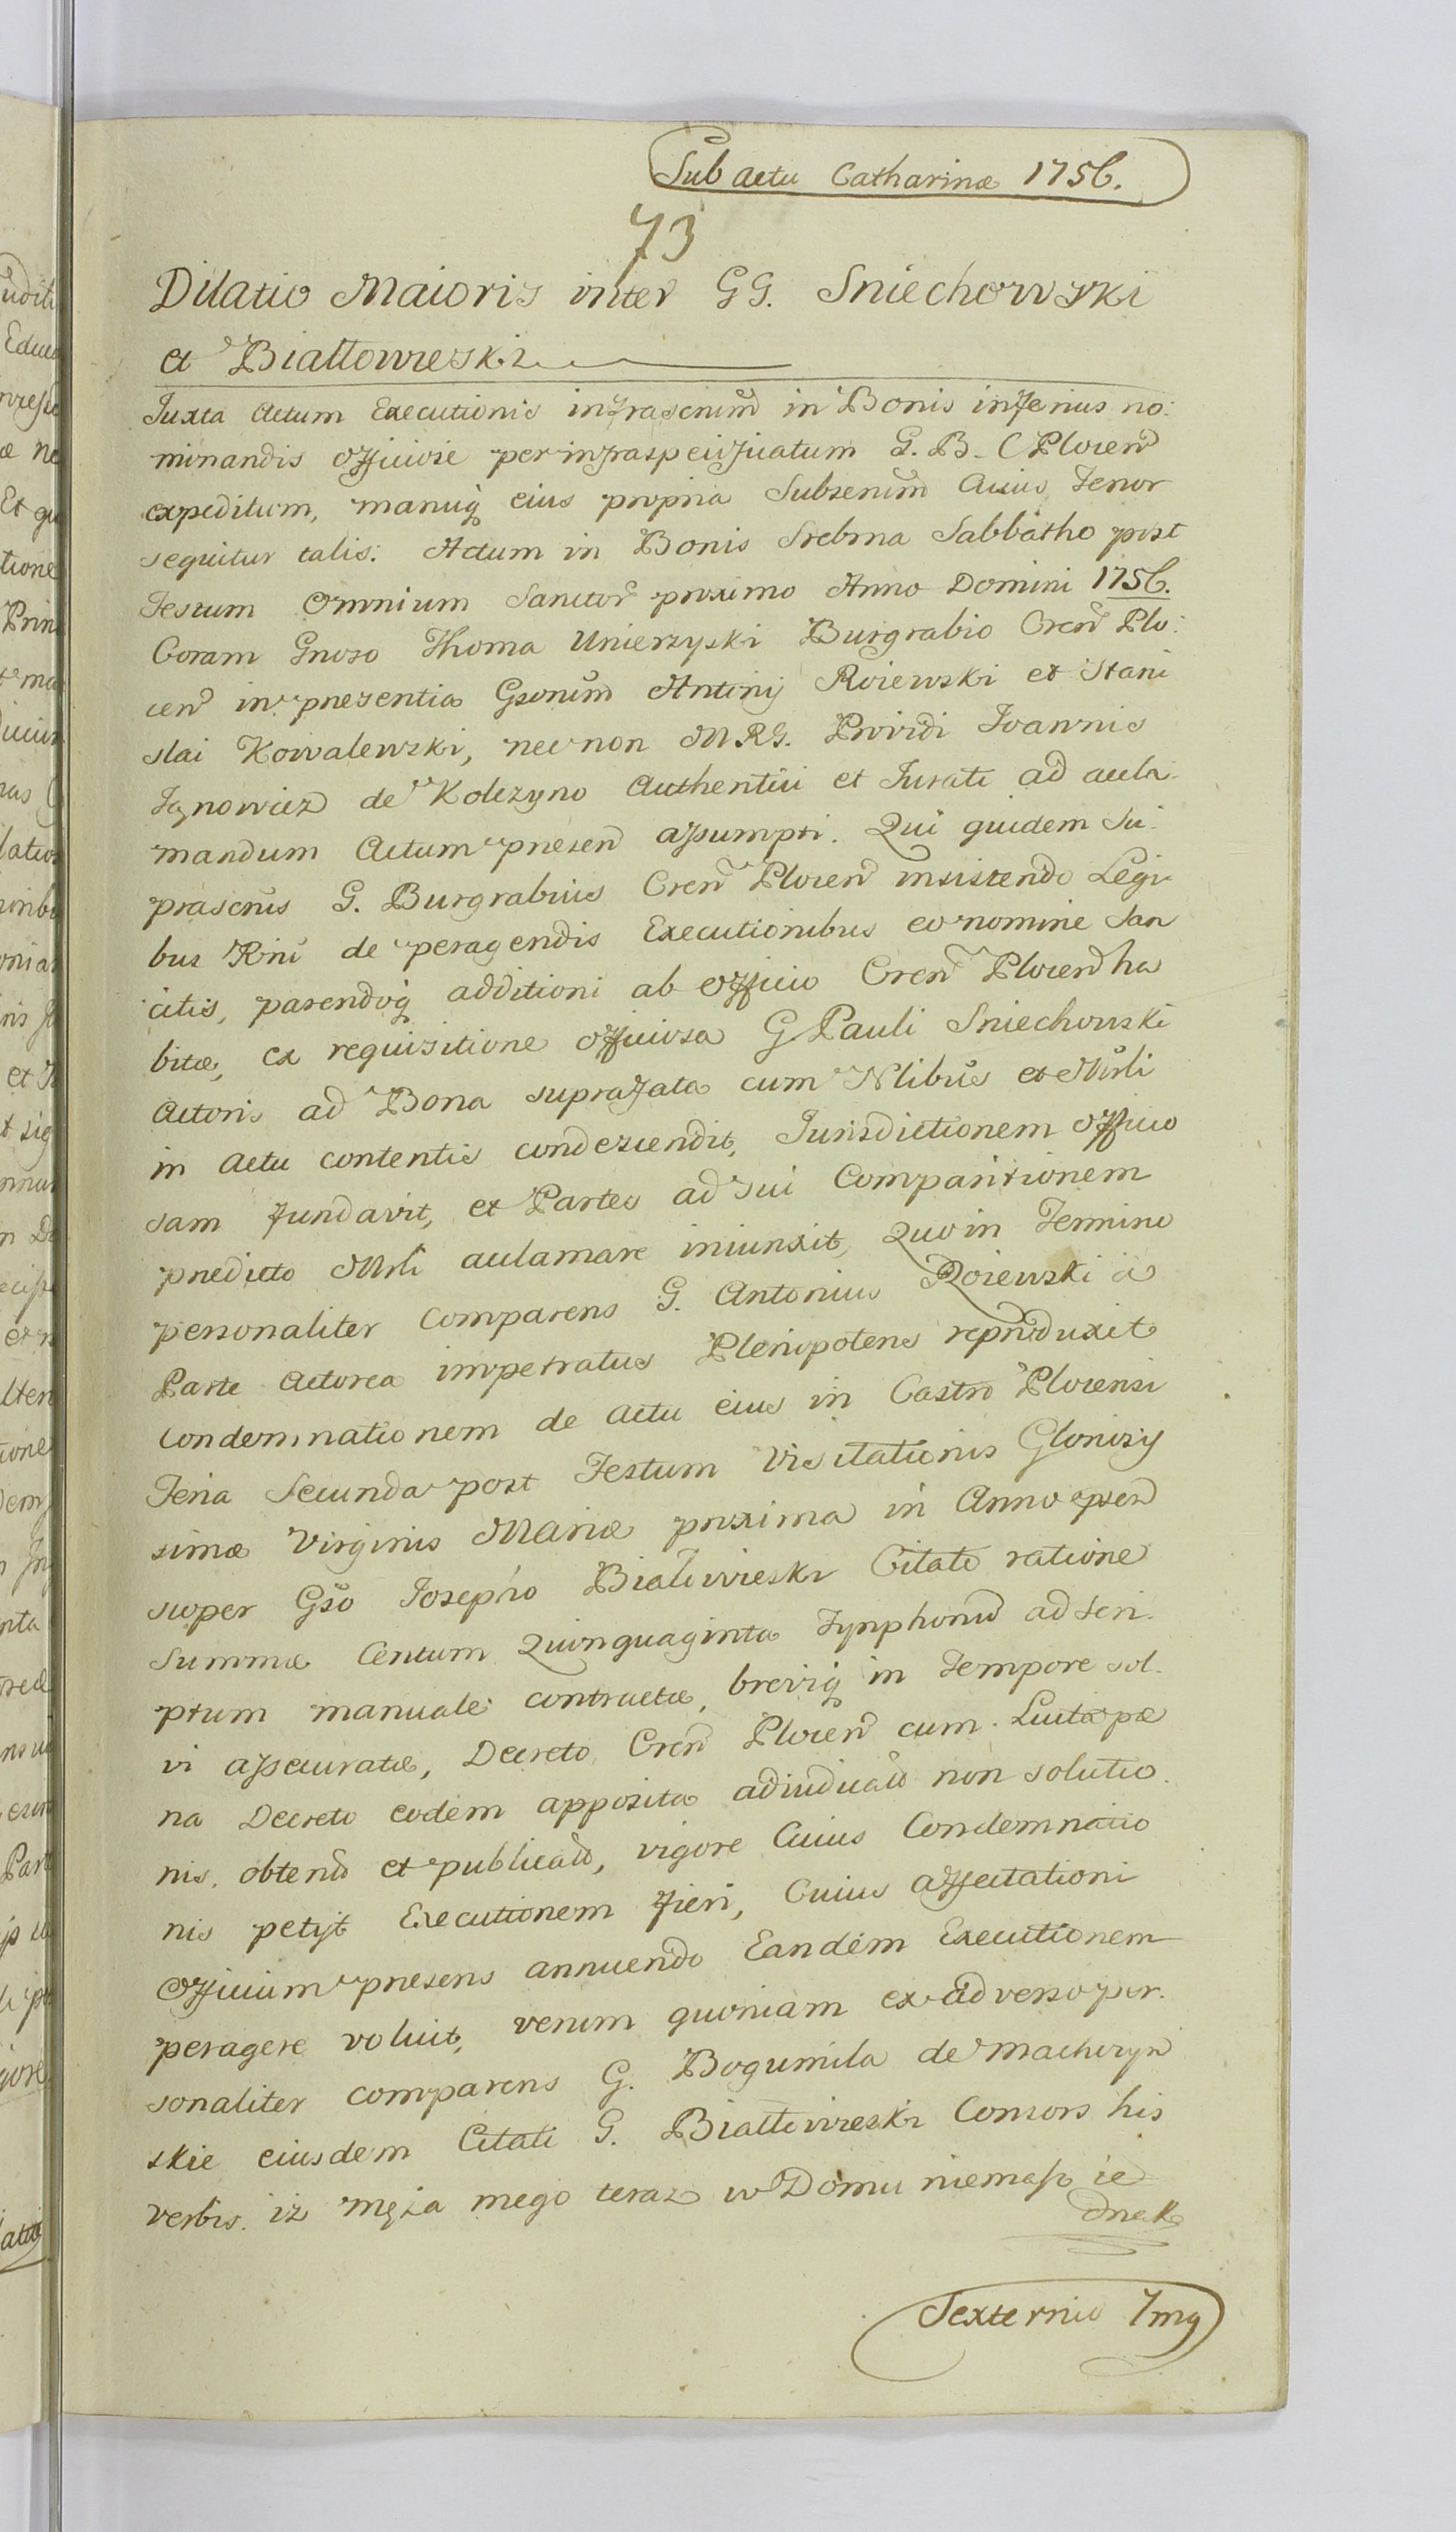 Sub actu Catharinæ 1756.
73
Dilatio Maioris inter GG. Sniechowski
et Białłowieski
Iuxta Actum Executionis infrascriptũ in Bonis inferius no:
minandis officiose per infraspecificatum G. B. C Plocen
expeditum, manuq eius propria Subscriptũ Cuius Tenor
sequitur talis. Actum in Bonis Srebrna Sabbatho post
Festum Omnium Sanctor proximo Anno Domini 1756.
Coram Gnoso Thoma Unierzyski Burgrabio Cren Plo:
cen in presentia Gsorum Antonij Roiewski et Stani
slai Kowalewski, nec non MRG. Providi Joannis
Jgnowicz de Kolczyno Authentici et Jurati ad acla:
mandum Actum presen assumpti. Qui quidem Su:
prascrus G. Burgrabius Cren Plocen insistendo Legi
bus Rni de peragendis Executionibus eo nomine San
citis, parendoq additioni ab Officio Cren Plocen ha
bitæ, ex requisitione officiosa G Pauli Sniechowski
Actoris ad Bona suprafata cum Nlibus et Mrli
in Actu contentis condescendit, Jurisdictionem officio
sam fundavit, et Partes ad sui Comparitionem
predicto Mrli aclamare iniunxit, Quo in Termino
personaliter Comparens G. Antonius Roiewski à
Parte Actorea impetratus Plenipotens reproduxit
Condemnationem de Actu eius in Castro Plocensi
Feria Secunda post Festum Visitationis Gloriosis
simæ Virginis Mariæ proxima in Anno presen
super Gso Josepho Białłowieski Citato ratione
Summæ Centum Quinquaginta Tynphonũ ad Scri:
ptum manuale contractæ, breviq in Tempore sol:
vi assecuratæ, Decreto Cren Plocen cum Lucta pœ
na Decreto eodem apposita adiudicat non solutio
nis, obtent et publicat, vigore Cuius Condemnatio
nis petijt Executionem fieri, Cuius affectationi
Officium presens annuendo Eandem Executionem
peragere voluit, verum quoniam ex adverso per:
sonaliter comparens G. Bogumila de Machczyn
skie eiusdem Citati G. Białłowieski Consors his
verbis. iz męża mego teraz w Domu niemasz ie
dnak
Sexternio 7mg